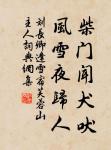 柴門聞犬吠
風雪夜歸人
劉長卿逢雪宿芙蓉山
主人詞典網集